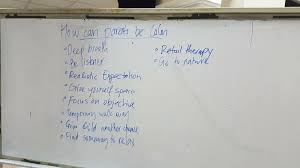 How can parent be Calm
• Deep breath
• Be listener
• Realistic Expectation
• Give yourself space
• Focus on objective
• Temporary walk away
• Give child another chance
• Find someway to relax
• Retail therapy
• Go to nature